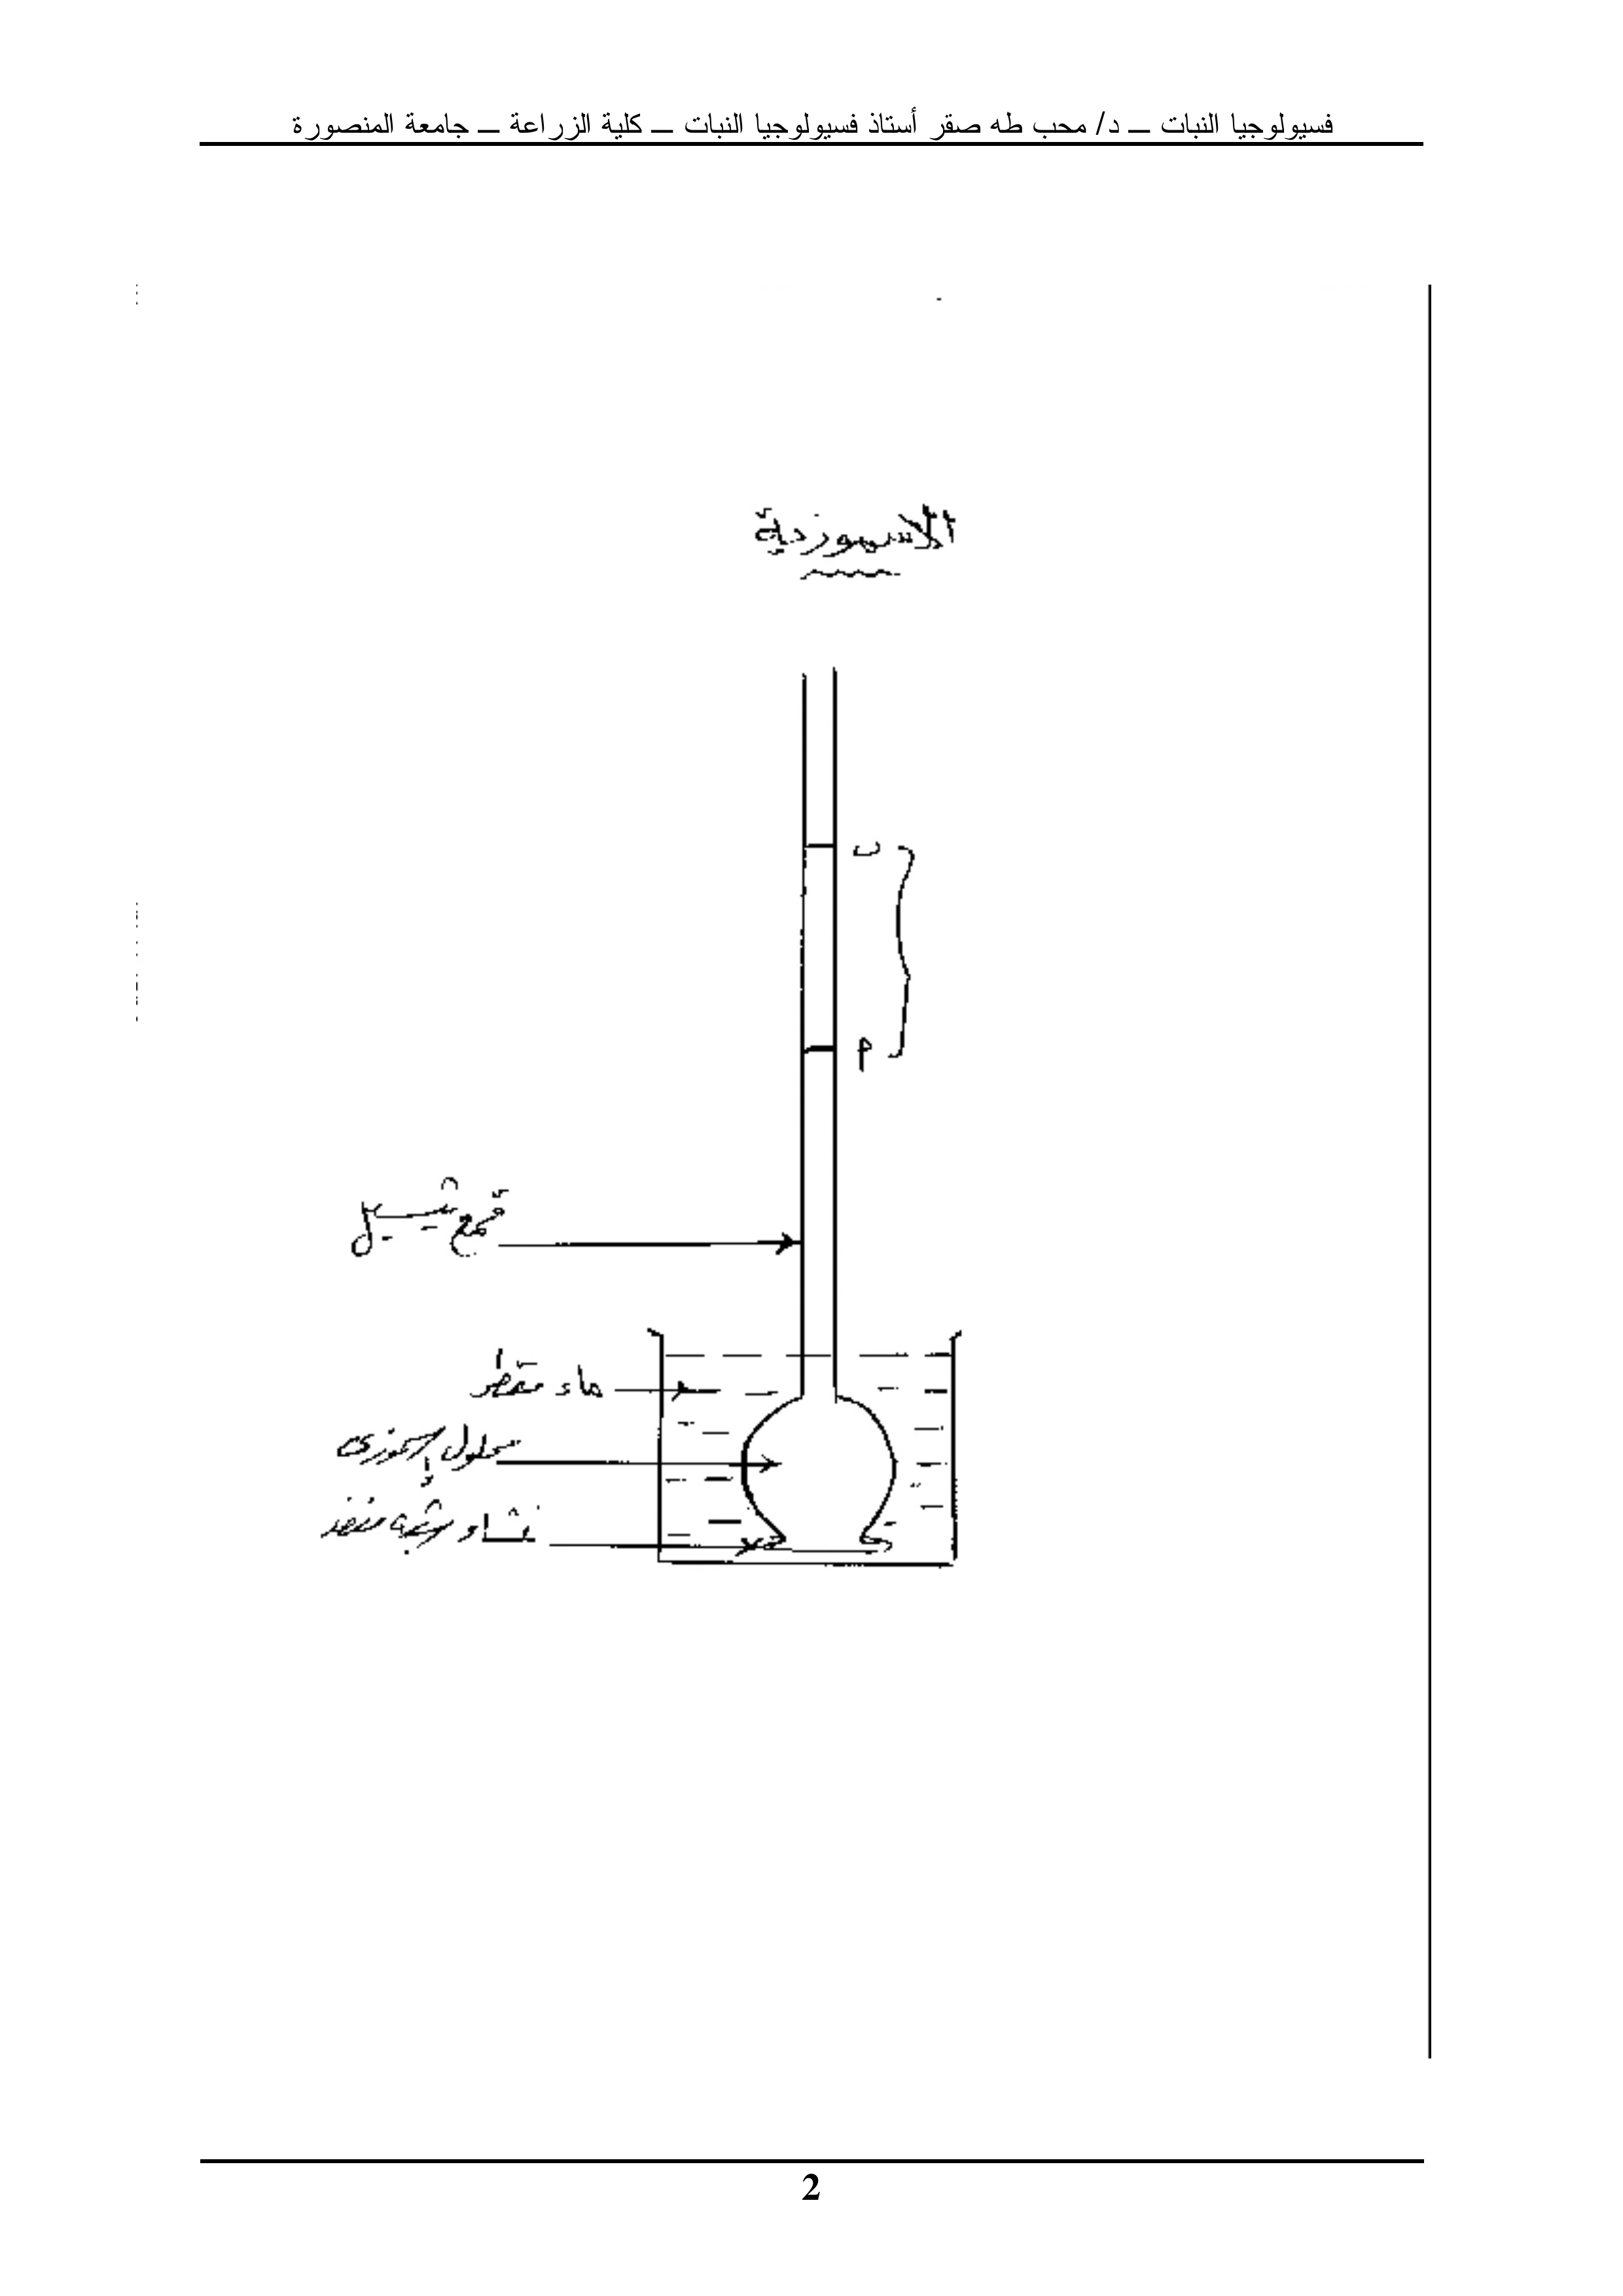 فسيولوجيا النبات ـــ د/ محب طه صقر أستاذ فسيولوجيا النبات ـــ كلية الزراعة ـــ جامعة المنصورة
الاسموزية
ب
م
قمع شيسل
ماء مقطر
محلول اسموزى
غشاء شبه منفذ
2